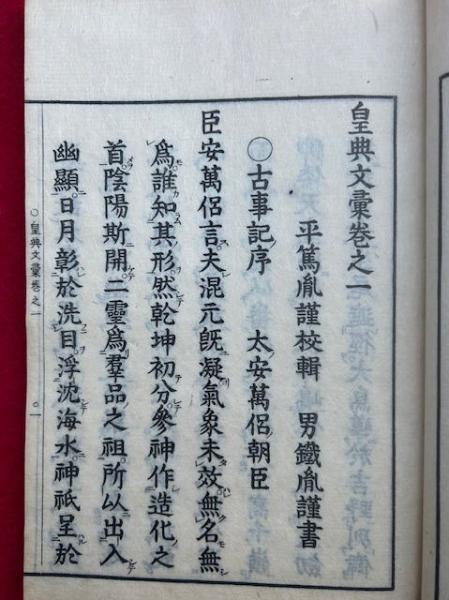 皇典文彙巻之一
平篤胤謹校輯 男鐵胤謹書
〇古事記序 太安萬侶朝臣
臣安萬侶言夫混元既凝氣象未效無名無
爲誰知其形然乾坤初分參神作造化之
首陰陽斯開二靈爲羣品之祖所以出入
幽顯日月彰於洗目浮沈海水神祇呈於
〇皇典文彙巻之一
〇一